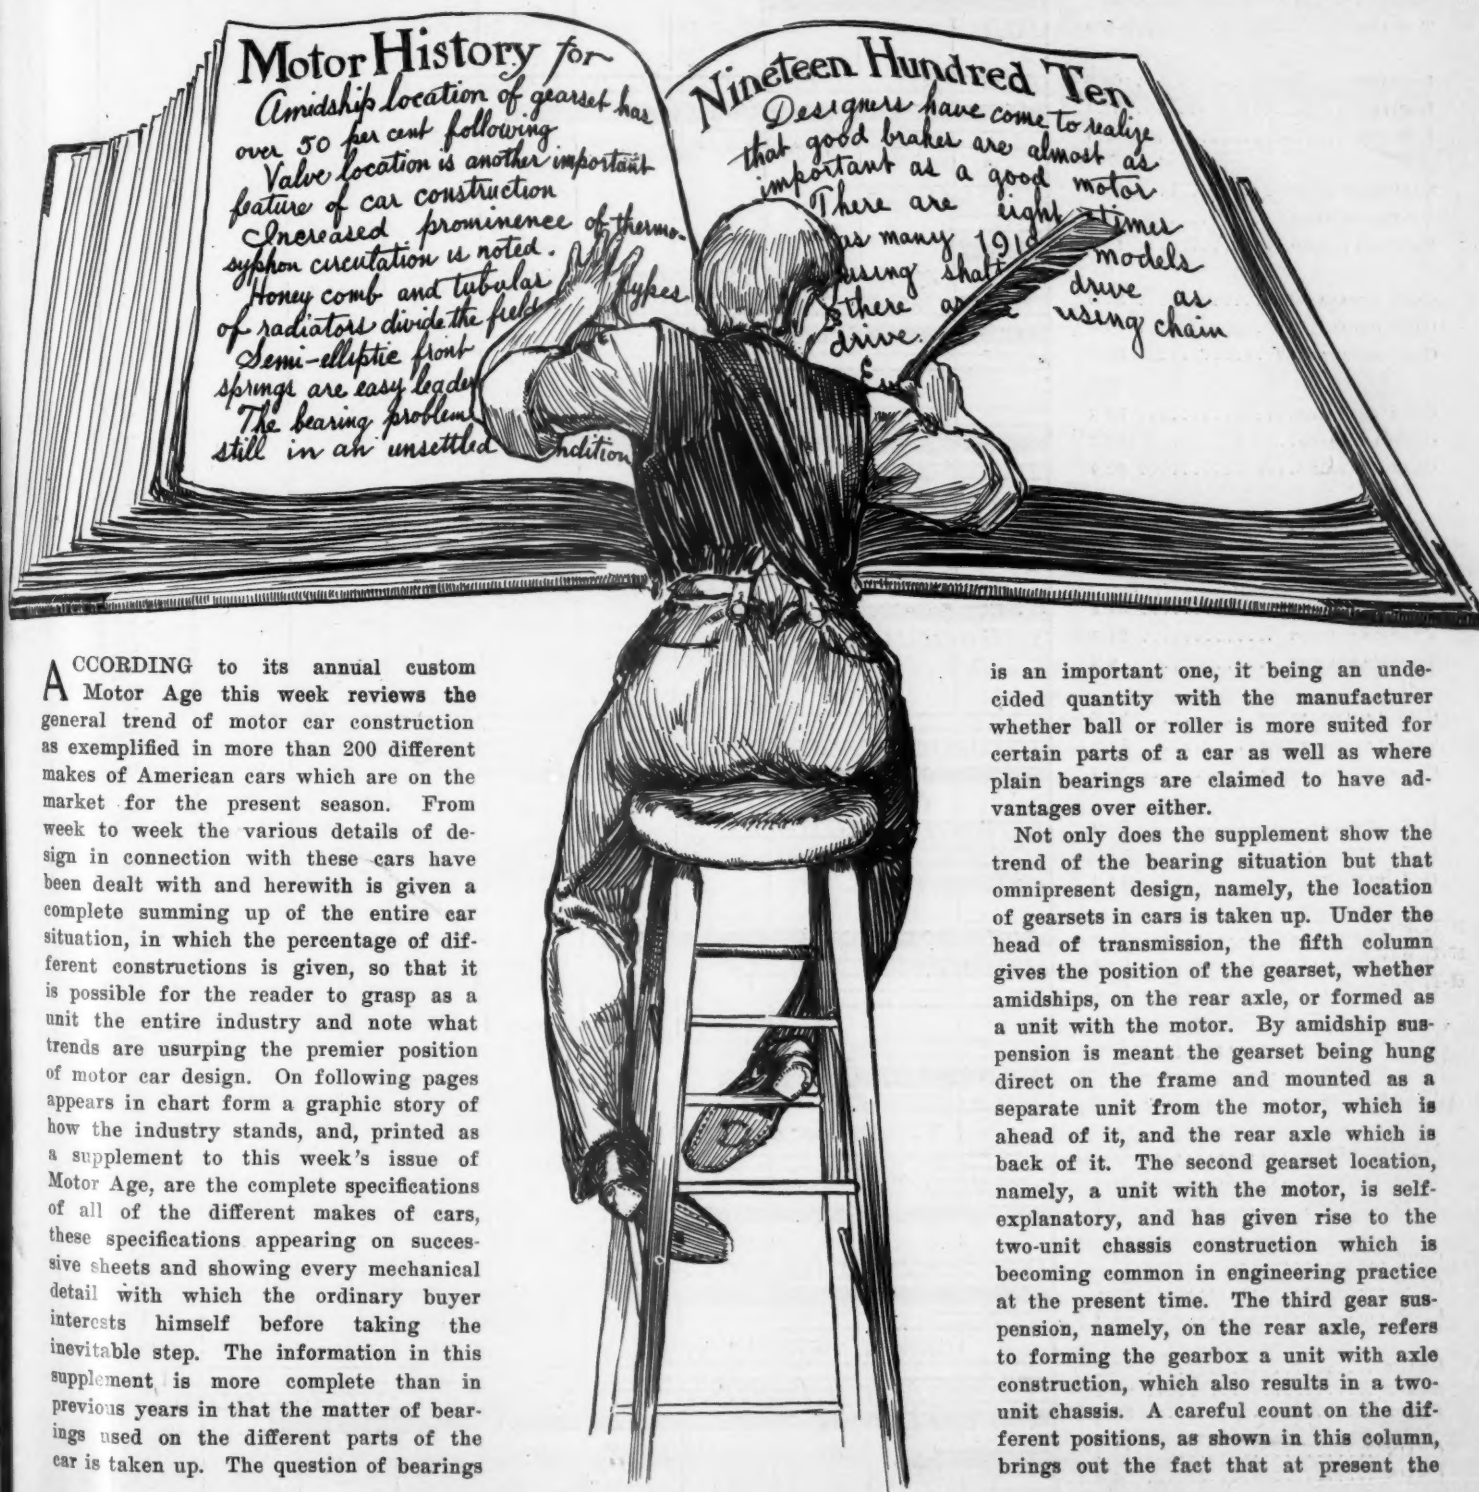 Motor History for
Amidship location of gearset has
over 50 per cent following
Valve location is another important
feature of car construction
Increased prominence of thermo-
syphon circulation is noted.
Honey comb and tubular types
of radiators divide the field
Semi-elliptic front
springs are easy leader
The bearing problem
still in an unsettled ndition
Nineteen Hundred Ten
Designers have come to realize
that good brakes are almost as
important as a good motor
There are eight times
as many 191 models
using shaft drive as
there a using chain
drive.
ACCORDING to its annual custom
Motor Age this week reviews the
general trend of motor car construction
as exemplified in more than 200 different
makes of American cars which are on the
market for the present season. From
week to week the various details of de-
sign in connection with these cars have
been dealt with and herewith is given a
complete summing up of the entire car
situation, in which the percentage of dif-
ferent constructions is given, so that it
is possible for the reader to grasp as a
unit the entire industry and note what
trends are usurping the premier position
of motor car design. On following pages
appears in chart form a graphic story of
how the industry stands, and, printed as
a supplement to this week's issue of
Motor Age, are the complete specifications
of all of the different makes of cars,
these specifications appearing on succes-
sive sheets and showing every mechanical
detail with which the ordinary buyer
interests himself before taking the
inevitable step. The information in this
supplement is more complete than in
previous years in that the matter of bear-
ings used on the different parts of the
car is taken up. The question of bearings
is an important one, it being an unde-
cided quantity with the manufacturer
whether ball or roller is more suited for
certain parts of a car as well as where
plain bearings are claimed to have ad-
vantages over either.
Not only does the supplement show the
trend of the bearing situation but that
omnipresent design, namely, the location
of gearsets in cars is taken up. Under the
head of transmission, the fifth column
gives the position of the gearset, whether
amidships, on the rear axle, or formed as
a unit with the motor. By amidship sus-
pension is meant the gearset being hung
direct on the frame and mounted as a
separate unit from the motor, which is
ahead of it, and the rear axle which is
back of it. The second gearset location,
namely, a unit with the motor, is self-
explanatory, and has given rise to the
two-unit chassis construction which is
becoming common in engineering practice
at the present time. The third gear sus-
pension, namely, on the rear axle, refers
to forming the gearbox a unit with axle
construction, which also results in a two-
unit chassis. A careful count on the dif-
ferent positions, as shown in this column,
brings out the fact that at present the